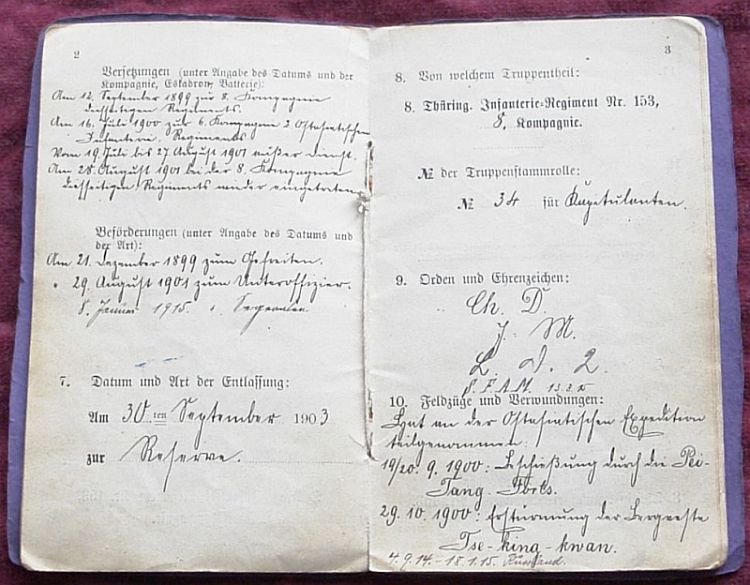 2
Versetzungen (unter Angabe des Datums und der
Kompagnie, Eskadron, Batterie):
Am 12. September 1899 zur 8. Kompagnie
diesseitigen Regiments.
Am 16. Juli 1900 zur 6. Kompagnie 2 Ostasiatischen
Infanterie Regiments
Vom 19. Juli bis 27. August 1901 außer Dienst.
Am 28. August 1901 bei der 8. Kompagnie
diesseitigen Regiments wieder eingetreten
Beförderungen (unter Angabe des Datums und
der Art):
Am 21. Dezember 1899 zum Gefreiten.
" 29. August 1901 zum Unteroffizier.
8. Januar 1915 " Sergeanten
7. Datum und Art der Entlassung:
Am 30ten September 1903
zur Reserve.
3
8. Von welchem Truppentheil:
8. Thüring. Infanterie-Regiment Nr. 153,
8. Kompagnie.
№ der Truppenstammrolle:
№ 34 für Kapitulanten.
9. Orden und Ehrenzeichen:
Ch. D.
J. M.
L. D. 2.
10. Feldzüge und Verwundungen:
Hat an der Ostasiatischen Expedition
teilgenommen:
19/20. 9. 1900: Beschießung durch die Pei-
Tang-Forts.
29. 10. 1900: Erstürmung der Bergveste
Tse-king-kwan.
4. 9. 14. - 18. 1. 15. Russland.